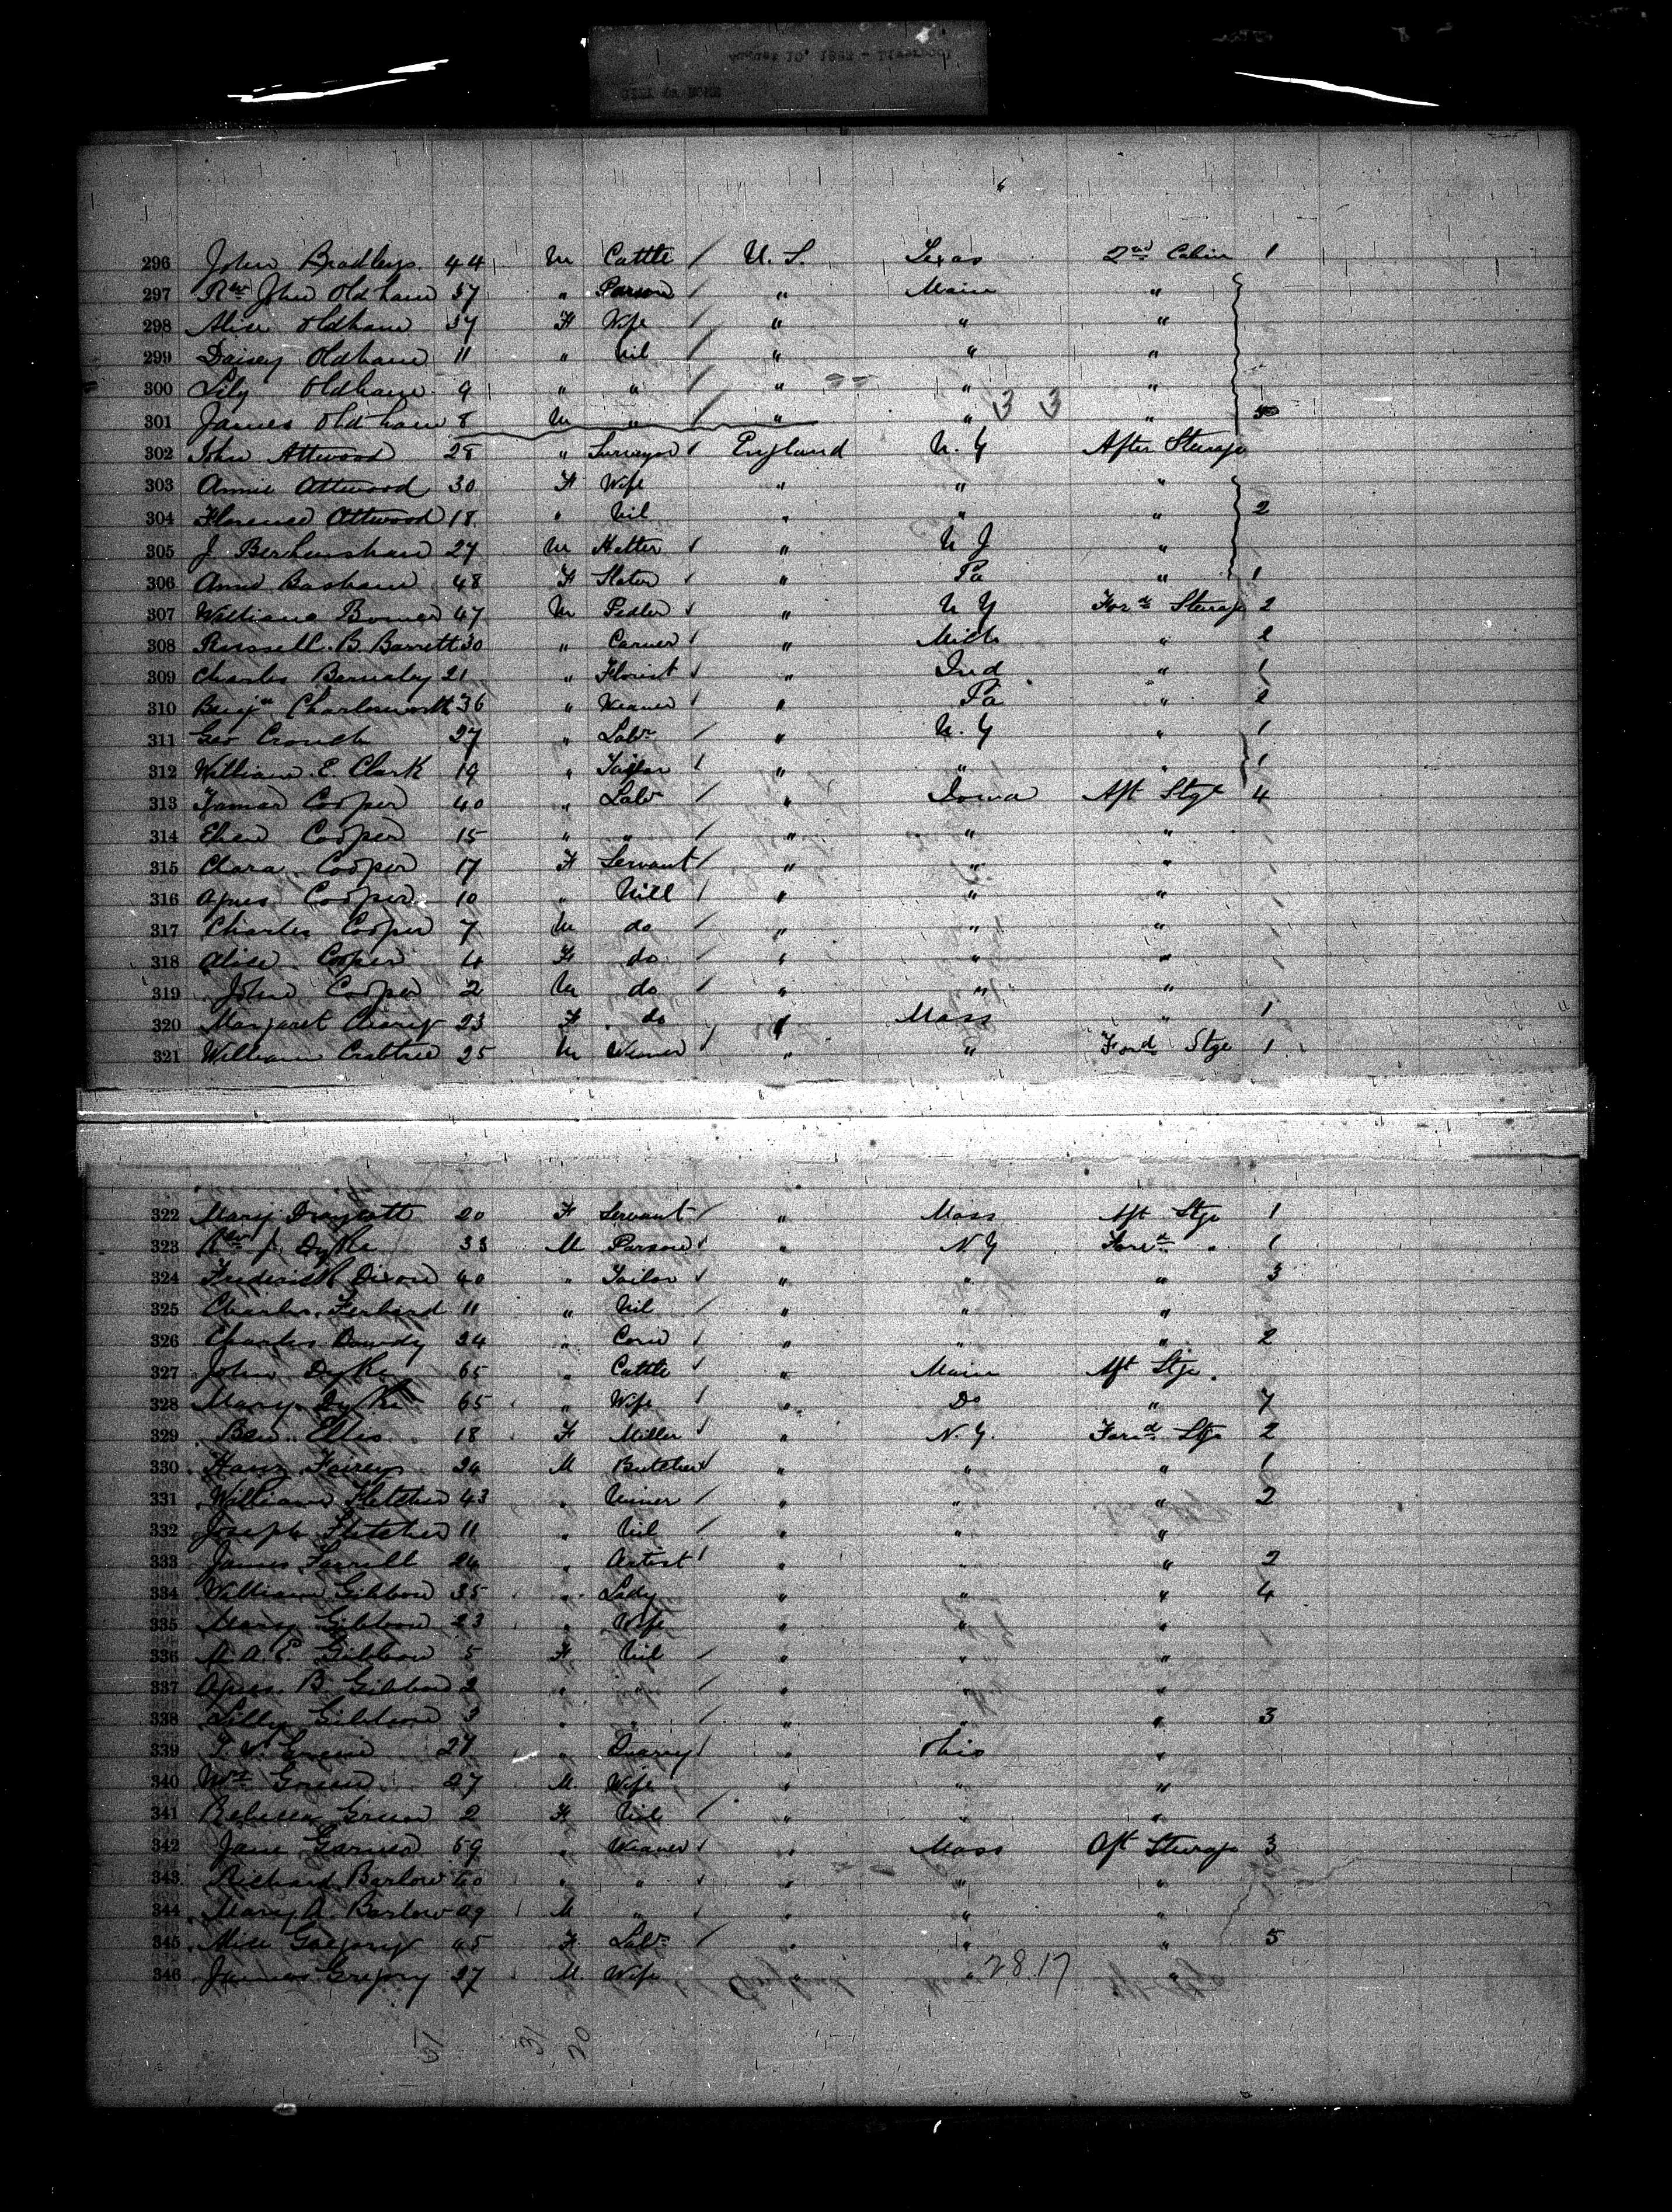 296 John Bradleys 44 M Cattle / U. S. Texas 2nd Cabin 1
297 Rev John Oldham 37 " Parson / " Main "
298 Alice Oldham 37 F Wife / " " "
299 Daisey Oldham 11 " Nil / " " "
300 Lily Oldham 9 " " / " " "
301 James Oldham 8 M " / " " " 5
3 3
302 John Attwood 28 " Surveyor / England N. Y After Steerage
303 Annie Attwood 30 F Wife " " "
304 Florence Attwood 18 " Nil " " " 2
305 J 27 M Hatter / " N J "
306 Ann Basham 48 F / " Pa " 1
307 William 47 M Pedler / " N Y Ford Steerage 2
308 Russell B Barrett 30 " Carver / " Mich " 2
309 Charles Barnaby 21 " Florist / " Ind " 1
310 Benjn Charlesworth 36 " Weaver / " Pa " 2
311 Geo Crouch 27 " Labr / " N. Y " 1
312 William E. Clark 19 " Tailor / " " " 1
313 Cooper 40 " Labr / " Iowa Aft Stge 4
314 Cooper 15 " " / " " "
315 Clara Cooper 17 F Servant / " " "
316 Agnes Cooper 10 " Nill / " " "
317 Charles Cooper 7 M do / " " "
318 Alice Cooper 4 F do / " " "
319 John Cooper 2 M do / " " "
320 Margaret 23 F do / " Mass " 1
321 William Crabtree 25 M Weaver / " " Ford Stge 1
322 Mary Draycott 20 F Servant / " Mass Aft Stge 1
323 Rev J. Dyke 33 M Parson / " N Y Ford " 1
324 Frederick Dixon 40 " Tailor / " " " 3
325 Charles 11 " Nil / " " "
326 Charles Dowdy 24 " / " " " 2
327 John Dyke 65 " Cattle / " Main Aft Stge
328 Mary Dyke 65 " Wife / " Do " 7
329 Ben Ellis 18 F Miller / " N. Y. Ford Stge 2
330 24 M Butcher / " " " 1
331 William Fletcher 43 " Miner / " " " 2
332 Joseph Fletcher 11 " Nil / " " "
333 James Farrell 24 " Artist / " " " 2
334 William Gibbon 35 " Lady " " " 4
335 Mary Gibbon 23 " Wife " " "
336 M. A. E. Gibbon 5 F Nil / " " "
337 Agnes B Gibbon 2 " " / " " "
338 Lilly Gibbon 3 " " / " " " 3
339 27 " Quarry / " Ohio "
340 Green 27 M. Wife " " "
341 Rebecca Green 2 F Nil / " " "
342 Jane Garner 59 " Weaver / " Mass Aft Steerage 3
343 Richard Barlow " " / " " "
344 Mary A. Barlow 29 M " / " " "
345 Gregory 45 F Labr / " " " 5
346 James Gregory 27 M. Wife " " "
2817